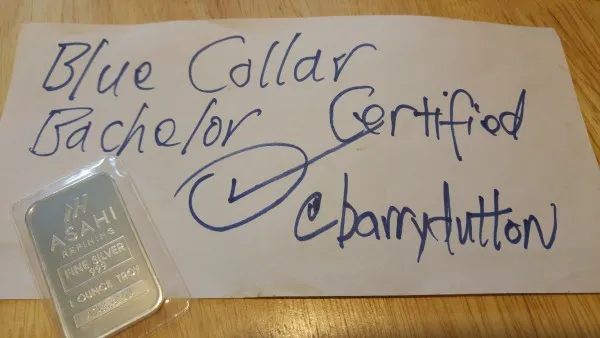 Blue Collar
Bachelor Certified
@barrydutton
ASAHI
REFINING
FINE SILVER
999
1 OUNCE TROY